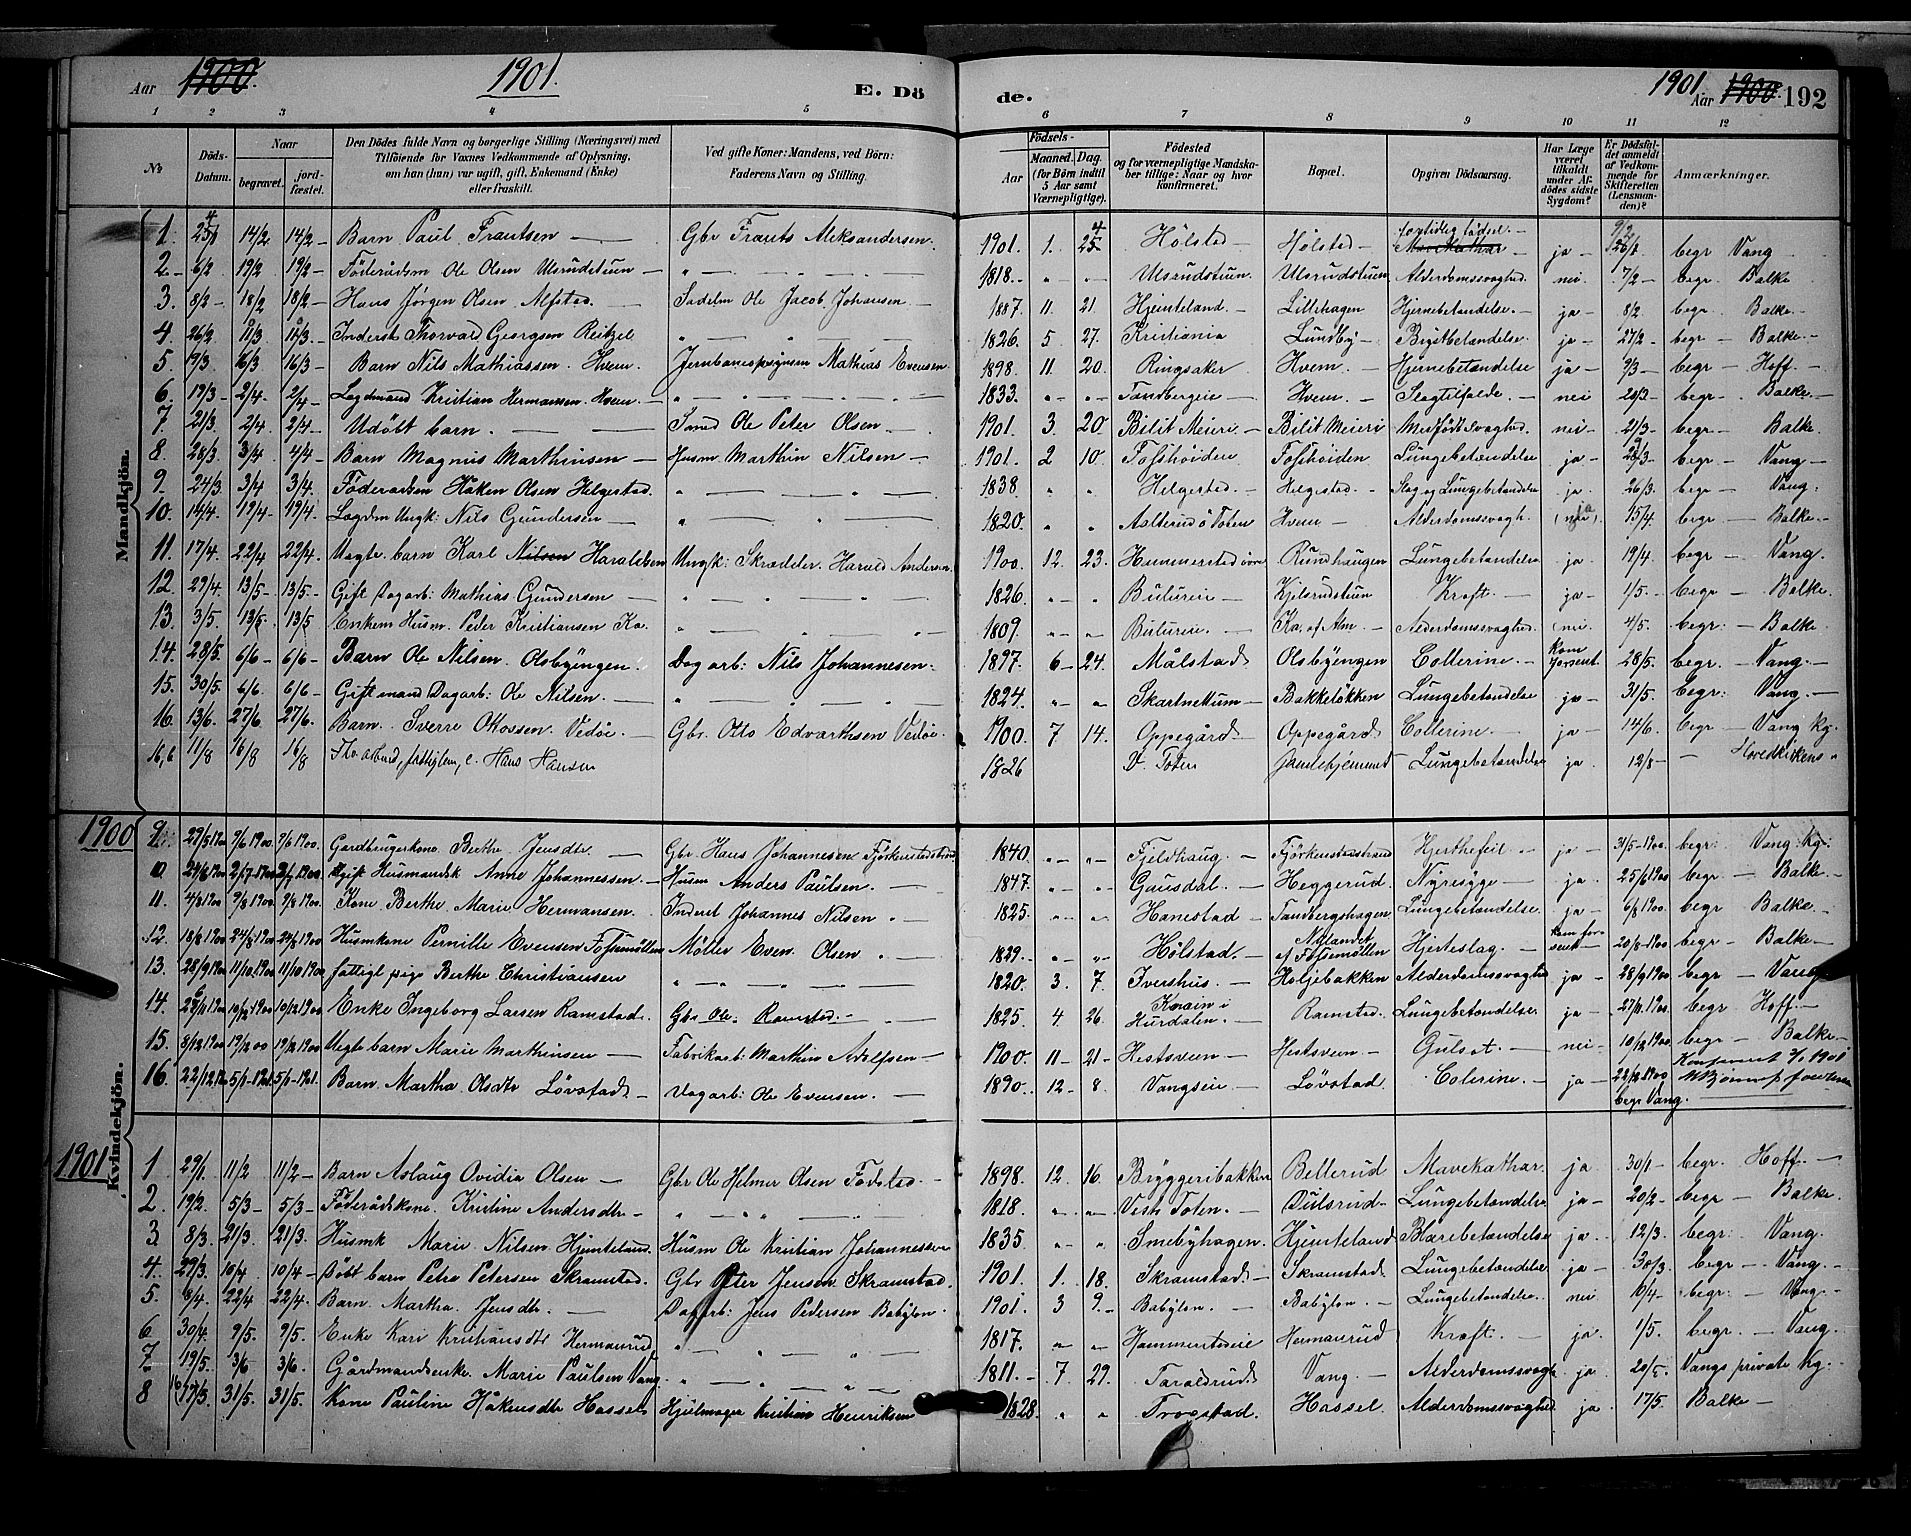 Aar 1900. 1901. E. Dö
1 2 3 4 5
№ Döds-Datum. Naar begravet. jordfæstet. Den Dödes fulde Navn og borgerlige Stilling (Næringsvei) med Tilföiende for Voxnes Vedkommende af Oplysning, om han (hun) var ugift, gift, Enkemand (Enke) eller fraskilt. Ved gifte Koner: Mandens, ved Börn: Faderens Navn og Stilling.
Mandkjön.
1. 14/2 14/2 - Barn Paul Frantsen — Gbr Frants Aleksandersen.
2. - 6/2 19/2 19/2 - Föderådsm Ole Olsen Ulsrudstuen — " — —
3. 8/2 - 18/2 18/2 - Hans Jørgen Olsen Alfstad. — Sadelm Ole Jacob Johansen —
4. 26/2 Inderst Thorvald Georgsen Reitzel " — — "
5. 9/3 16/3 16/3 - Barn Nils Mathiassen. Hvem. Mathias Evensen
6. 19/3 - 2/4 - 2/4 - Lægdmand Kristian Hermansen. Hvem. — " — — " —
7. 21/3 2/4 - 2/4 - Udöbt barn. — — Ole Peter Olsen — —
8. 28/3 3/4 4/4 - Barn Magnus Marthinsen — Husm Marthin Nilsen —
9. 24/3 3/4 3/4. Föderådsm Håken Olsen Helgestad. " — — " —
10. 14/4 19/4 - 19/4. Lægdm Ungk: Nils Gundersen — " — — " —
11. 17/4. 22/4 22/4. Uægte barn Karl Nilsen Haraldsen Ungk: Skrædder. Harald Andersen
12. 29/4. 13/5 - 13/5. Gift Dagarb: Mathias Gundersen — " — — " —
13. 3/5. 13/5. 13/5 Enkem Husm. Peder Kristiansen Ka. " — — " "
14. 28/5. 6/6 - 6/6 - Barn Ole Nilsen. Olsbyengen. Dagarb: Nils Johannesen.
15. 30/5. 6/6. 6/6 - Gift mand Dagarb: Ole Nilsen. — " — — " —
16. 13/6. 27/6 27/6. Barn. Sverre Ottossen. Vedöe. — Gbr. Otto Edvarthsen Vedöe.
11/8 16/8 16/8 Hans Hansen
1900
Kvindekjön.
9. 29/5 1900 9/6 1900. 9/6 1900. Gardbrugerkone Berthe Jensdtr. — Gbr. Hans Johannesen
10. gift Husmandsk Anne Johannessen. — Husm Anders Paulsen. —
11. 4/8 1900 9/8 1900. 9/8 1900. Kone Berthe Marie Hermansen. Inderst Johannes Nilsen —
12. 18/8 1900 24/8 1900 24/8 1900 Husmkone Pernille Evensen Fossemöllen Möller Even Olsen. —
13. 28/9 1900 11/10 1900 11/10 1900 fattigl pige Berthe Christiansen " — " — " —
14. 10/12 1900 10/12 1900 Enke Ingeborg Larsen Ramstad. Gbr Ole. Ramstad. —
15. 8/12 1900 19/12 00 19/12 1900 Uægte barn Marie Marthinsen — Fabrikarb: Marthin Adolfsen —
16. 22/12 1900 5/1 - 1901. 5/1 - 1901. Barn. Martha Olsdtr Lövstad — Dagarb: Ole Evensen. —
1901
1 29/1. 11/2 11/2 - Barn Aslaug Ovidia Olsen — Gbr Ole Helmer Olsen Fodstad. —
2. 19/2. 5/3 - 5/3 - Föderådskone. Kristine Andersdtr — " — " " —
3. 8/3 21/3. 21/3. Husmk Marie Nilsen Hjemteland. Husm Ole Kristian Johannessen
4. 29/3. 10/4 10/4 - Döbt barn Petra Petersen Skramstad. Gbr Peter Jensen Skramstad.
5. 8/4. 22/4 22/4. Barn. Martha Jensdtr. — Dagarb: Jens Pedersen Babylon.
6 30/4. 9/5. 9/5. Enke Kari Kristiansdtr Hermanrud " — — " —
7. 19/5. 3/6 3/6. Gårdmandsenke. Marie Paulsen Vang " — " — " —
8 31/5. 31/5. Kone Pauline Håkensdtr Hassel Hjulmager Kristian Henriksen
de. 1901. Aar 1900. 192
6 7 8 9 10 11 12
Födsels- Aar Maaned. Dag. (for Börn indtil 5 Aar samt Værnepligtige). Födested og for værnepligtige Mandskaber tillige: Naar og hvor konfirmeret. Bopæl. Opgiven Dödsaarsag. Har Læge været tilkaldt under Afdödes sidste Sygdom? Er Dödsfaldet anmeldt af Vedkommende for Skifteretten (Lensmanden)? Anmærkninger.
1901. 1. Hölstad — Hölstad — fortidlig födsel. — Mavekathar ja — begr Vang —
1818. — " " Ulsrudstuen, Ulsrudstuen Alderdomssvaghed nei 7/2 — begr. Balke
1887. 11. 21. Hjemteland. — Lillehagen Hjernebetændelse. — ja — 8/2 begr. Balke. —
1826. 5 27. Kristiania Lundby — Brystbetændelse. ja — 27/2 — begr — Balke. —
1898. 11. 20. Ringsaker Hvem. — Hjernebetændelse ja — 9/3 — begr — Hoff. —
1833. — " — Tandbergeie Hvem. — Slagtilfælde. — nei 20/3 — begr. — Balke —
1901. 3. 20. Bilit Meieri — Bilit Meieri Medfödt svaghed. nei — 21/3 — begr — Balke
1901. 2 10. Fosshöiden Fosshöiden Lungebetændelse ja — begr — Vang —
1838. " " Helgestad. — Helgestad. — Slag og Lungebetændelse ja. 26/3. begr — Vang.
1820. " " Aalterud ö Toten Hvem — Alderdomssvagh. 15/4. begr — Balke —
1900. 12. 23. Hammerstad övre Rundhaugen Lungebetændelse ja. 19/4. begr — Vang.
1826. — " " Bulureie — Kjilsrudstuen Kræft. — ja — 1/5 — begr. — Balke.
1809. — " " Bulureie. — Ka, af Alm — Alderdomssvaghed. nei. 4/5. begr. — Balke.
1897. 6 — 24. Målstad Olsbyengen Collerine. — Kom forsent. 28/5. begr. — Vang. —
1824. — " " Skartnettum — Bakkelökken Lungebetændelse ja — 31/5 begr: Vang. —
1900. 7. 14. Oppegård — Oppegård Collerine. — ja — 14/6. begr — Vang Kg.
1826 V. Toten Lungebetændelse ja 12/8 — — Hovedkirkens "
1840. " " Fjeldhaug. — Hjerthefeil. — ja — 31/5 1900. begr: Vang Kg:
1847. — " " Gausdal. — Heggerud. Nyresyge — ja. 25/6 1900 begr — Balke. —
1825. " " Hanestad — Tandbergshagen Lungebetændelse ja — 6/8 1900. begr Balke. —
1829. — " " Hölstad. — Nylandet af Fossemöllen Hjerteslag. — Kom forsent — 20/8 - 1900 begr — Balke —
1820. 3. 7. Ivershus. — Holjebakken Alderdomssvaghed ja — 28/9 1900 begr — Vang
1825. 4. 26. i Hurdalen. — Ramstad. Lungebetændelse ja — begr. Hoff. —
1900. 11 — 21 — Hestsveen — Hestsveen — Gulsot. — nei — 10/12 1900. begr — Balke —
1890. 12 — 8. Vangseie — Lövstad. Colerine. — ja — 22/12 1900 begr Vang.
1898. 12. 16. Bryggeribakken Bellerud Mavekathar. ja. 30/1 — begr. Hoff —
1818. " " Vestr Toten. — Dulsrud — Lungebetændelse ja — 20/2 — begr — Balke.
1835. " " Smebyhagen. Hjemteland Blærebetændelse ja. 12/3. begr: Vang.
1901. 1. 18. Skramstad — Skramstad. Lungebetændelse ja — 30/3. begr — Vang. —
1901. 3 9. — Babylon. — Babylon. — Lungebetændelse. nei 10/4 — begr: — Vang. —
1817. — " " Hammerstadeie Hermanrud Kræft. — ja. 1/5. begr. — Vang.
1811. — 7 29. Taraldrud Vang. — Alderdomssvagh ja. Vangs private Kg:
1828. " " Trogstad. Hassel. Alderdomssvaghed ja 17/5. Balke —